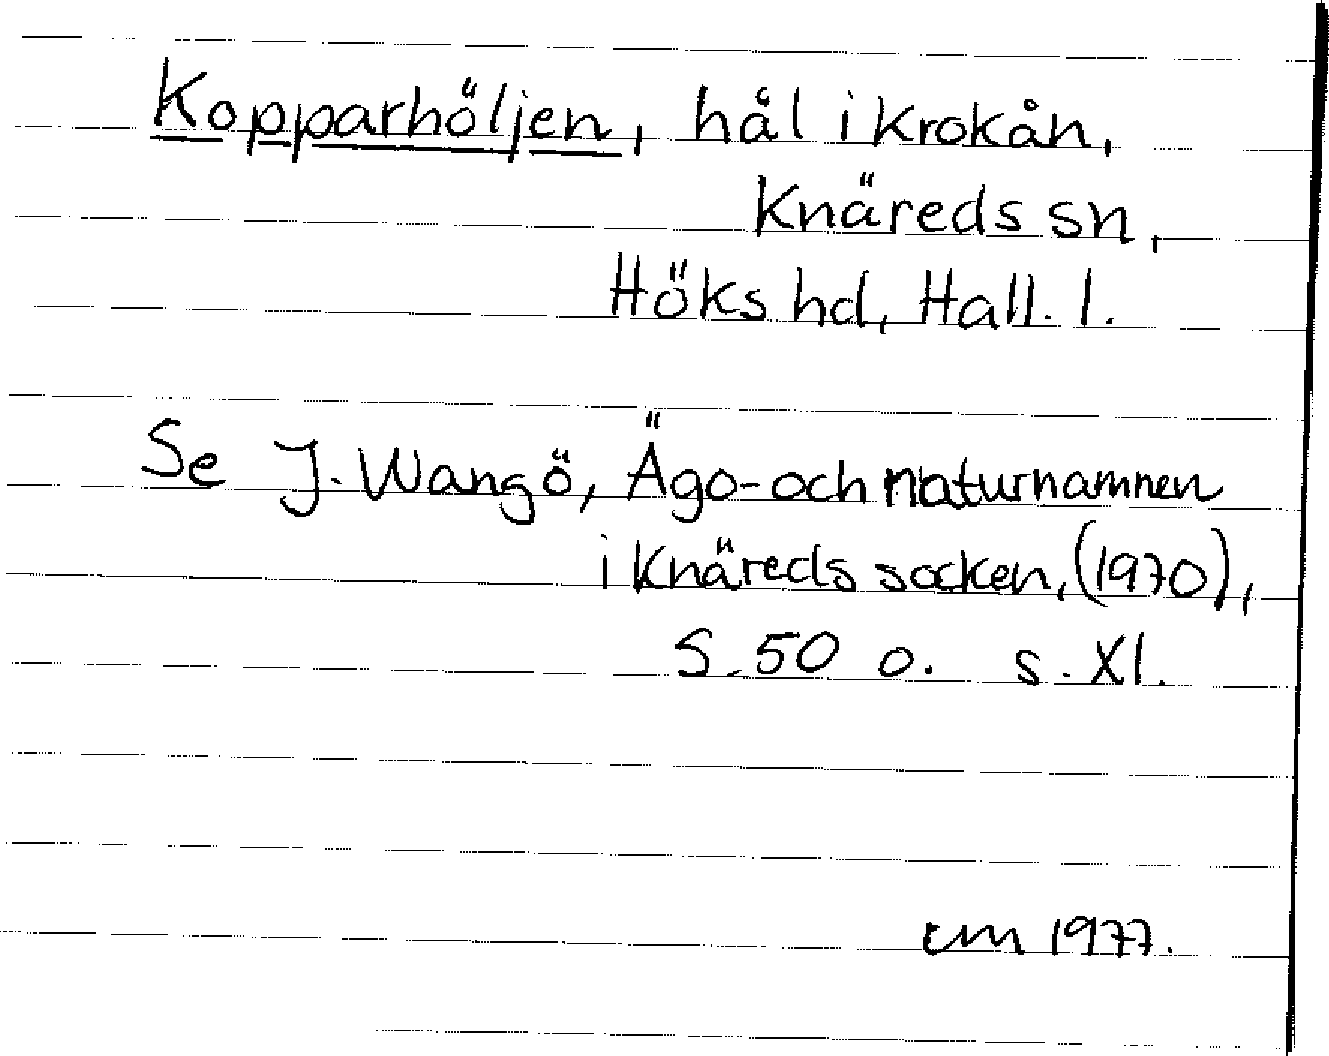 Kopparhöljen, hål i Krokån,
Knäreds sn,
Höks hd, Hall. l.
Se J. Wangö, Ägo- och naturnamnen
i Knäreds socken, (1970),
S. 50 o. s. XI.
em 1977.